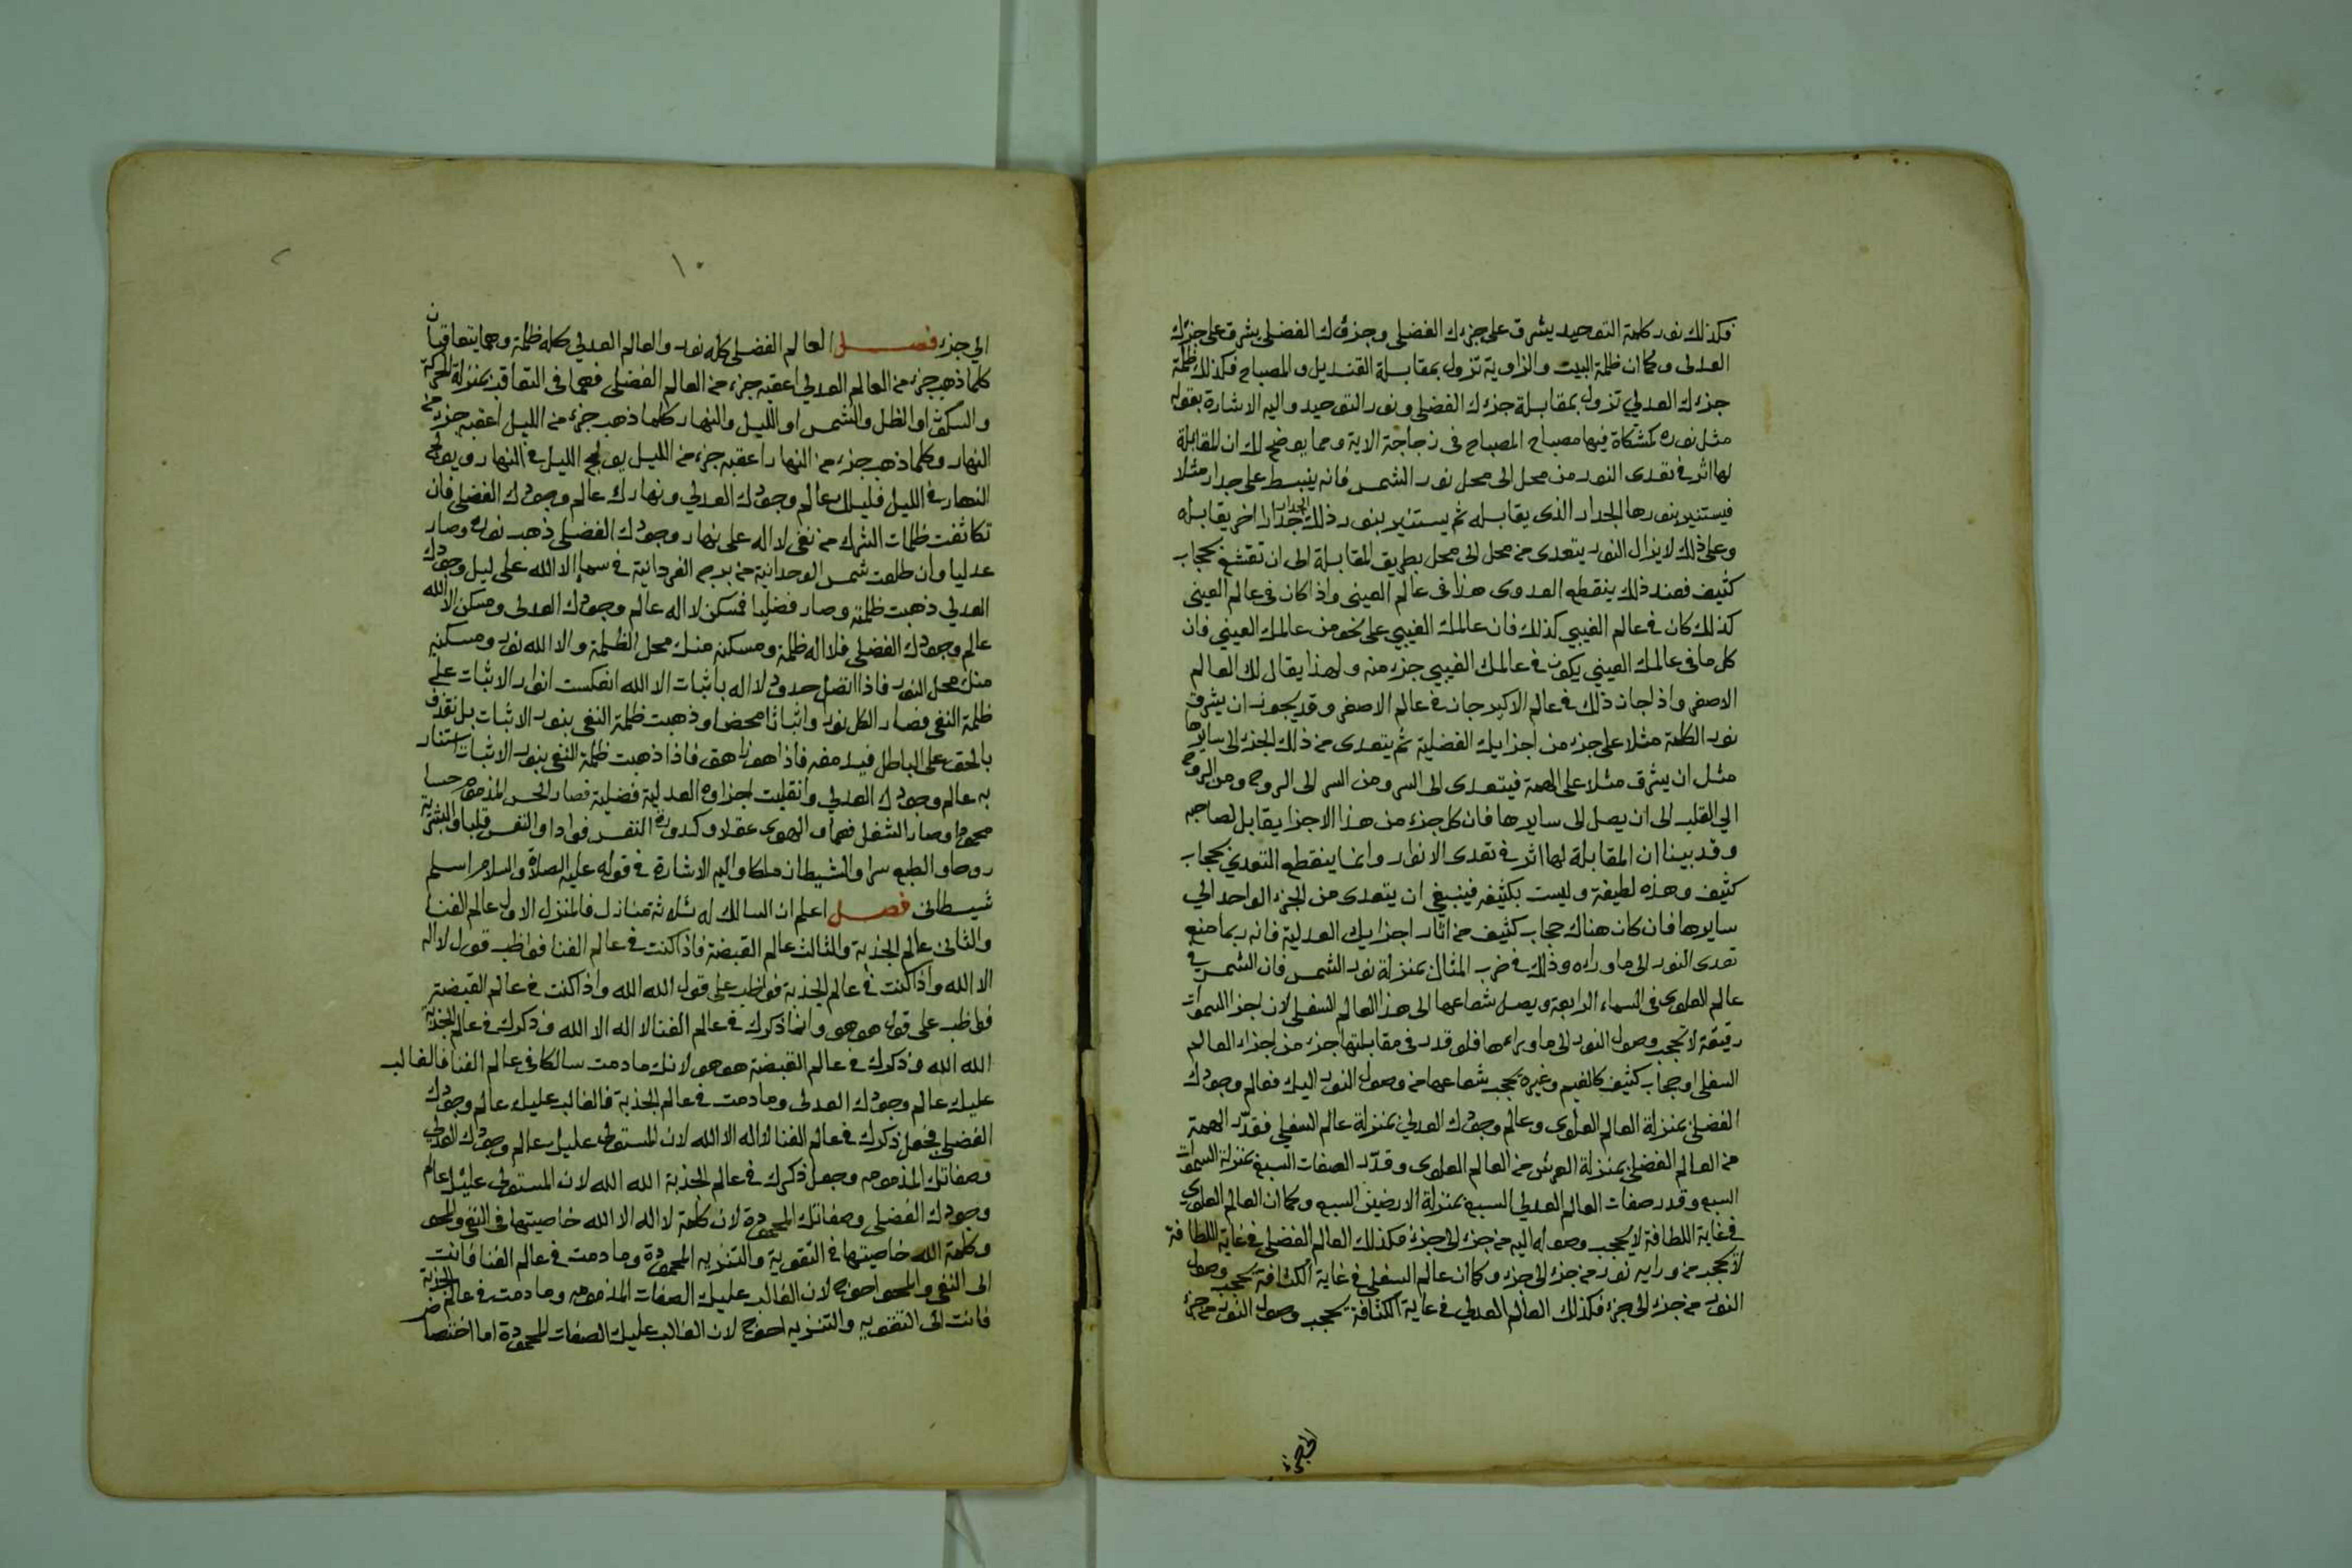 فكذلك نور كلمة التوحيد يشرق على جزءك الفضلى وجزؤك الفضلى يشرق على جزئك
العدلى وكما ان ظلمة البيت والزاوية تزول بمقابلة القنديل والمصباح فكذلك ظلمة
جزءك العدلي تزول بمقابلة جزءك الفضلى ونور التوحيد واليه الاشارة بقوله
مثل نوره كمشكاة فيها مصباح المصباح فى زجاجة الاية ومما يوضح لك ان للمقابلة
لها اثر فى تعدى النور من محل الى محل نور الشمس فانه ينبسط على جدار مثلا
فيستنير بنورها الجدار الذى يقابله ثم يستنير بنور ذلك الجدار جدارا اخر يقابله
وعلى ذلك لا يزال النور يتعدى من محل الى محل بطريق المقابلة الى ان تقشغ بحجاب
كثيف فعند ذلك ينقطع العدوى هذا فى عالم العينى واذا كان فى عالم العينى
كذلك كان فى عالم الغيبي كذلك فان عالمك الغيبي على نحو من عالمك العيني فان
كل ما فى عالمك العيني يكون فى عالمك الغيبي جزء منه ولهذا يقال لك العالم
الاصغر واذا جاز ذلك فى عالم الاكبر جاز فى عالم الاصغر وقد يجوز ان يشرق
نور الكلمة مثلا على جزء من اجزايك الفضلية ثم يتعدى من ذلك الجزء الى سايرها
مثل ان يشرق مثلا على الهمة فيتعدى الى السر ومن السر الى الروح ومن الروح
الي القلب الى ان يصل الى سايرها فان كل جزء من هذا الاجزا يقابل لصاحبه
وقد بينا ان المقابلة لها اثر فى تعدى الانوار وانما ينقطع التعدي بحجاب
كثيف وهذه لطيفة وليست بكثيفه فينبغى ان يتعدى من الجزء الواحد الي
سايرها فان كان هناك حجاب كثيف من اثار اجزايك العدلية فانه ربما منع
تعدى النور الى ما وراءه وذلك فى ضرب المثال بمنزلة نور الشمس فان الشمس فى
عالم العلوى فى السماء الرابعة ويصل شعاعها الى هذا العالم السفلى لان اجزا السموات
رقيقة لا تحجب وصول النور الى ما وراءها فلو قدر فى مقابلتها جزء من اجزاء العالم
السفلى او حجاب كثيف كالغيم وغيره يحجب شعاعها من وصول النور اليك فعالم وجودك
الفضلى بمنزلة العالم العلوى وعالم وجودك العدلي بمنزلة عالم السفلى فقدّر الهمة
من العالم الفضلى بمنزلة العرش من العالم العلوى وقدّر الصفات السبع بمنزلة السموات
السبع وقدر صفات العالم العدلي السبع بمنزلة الارضين السبع وكما ان العالم العلوي
فى غاية اللطافة لا يحجب وصوله اليه من جزء الى جزء فكذلك العالم الفضلى فى غاية اللطافة
لا يحجب من ورايه نور من جزء الى جزء وكما ان عالم السفلى فى غاية الكثافة يحجب وصول
النور من جزء الى جزء فكذلك العالم العدلي فى غاية الكثافة يحجب وصول النور من جزء
١٠
الي جزء فصل العالم الفضلى كله نور والعالم العدلي كله ظلمة وهما يتعاقبان
كلما ذهب جزء من العالم العدلي اعقبه جزء من العالم الفضلى فهما فى التعاقب بمنزلة الحركة
والسكون او الظل والشمس او الليل والنهار كلما ذهب جزء من الليل اعقبه جزء من
النهار وكلما ذهب جزء من النهار اعقبه جزء من الليل يولج الليل فى النهار ويولج
النهار فى الليل فليلك عالم وجودك العدلي ونهارك عالم وجودك الفضلى فان
تكاثفت ظلمات الشرك من نفى لا اله على نهار وجودك الفضلى ذهب نوره وصار
عدليا وان طلعت شمس الوحدانية من برج الفردانية فى سما الا الله على ليل وجودك
العدلي ذهبت ظلمته وصار فضليا فمسكن لا اله عالم وجودك العدلى ومسكن الا الله
عالم وجودك الفضلى فلا اله ظلمة ومسكنه منك محل الظلمة والا الله نور ومسكنه
منك محل النور فاذا اتصل حدود لا اله باثبات الا الله انعكست انوار الاثبات على
ظلمة النفى فصار الكل نورا واثباتا محضا وذهبت ظلمة النفى بنور الاثبات بل نقذف
بالحق على الباطل فيدمغه فاذا هو زاهق فاذا ذهبت ظلمة النفى بنور الاثبات استنار
به عالم وجودك العدلي وانقلبت اجزاوه العدلية فضلية فصار الحس المذموم حسا
محمودا وصار الشغل فهما والهوى عقلا وكدورة النفس فوادا والنفس قلبا والبشرية
روحا والطبع سرا والشيطان ملكا واليه الاشارة فى قوله عليه الصلاة والسلام اسلم
شيطانى فصل اعلم ان السالك له ثلاثة منازل فالمنزل الاول عالم الفنا
والثانى عالم الجذبة والثالث عالم القبضة فاذا كنت فى عالم الفنا فواظب قول لا اله
الا الله واذا كنت فى عالم الجذبة فواظب على قول الله الله واذا كنت فى عالم القبضة
فواظب على قول هو هو وانما ذكرك فى عالم الفنا لا اله الا الله وذكرك فى عالم الجذبة
الله الله وذكرك فى عالم القبضة هو هو لانك ما دمت سالكا فى عالم الفنا فالغالب
عليك عالم وجودك العدلى وما دمت فى عالم الجذبة فالغالب عليك عالم وجودك
الفضلى فجعل ذكرك فى عالم الفنا لا اله الا الله لان المستولى عليك عالم وجودك العدلى
وصفاتك المذمومه وجعل ذكرك فى عالم الجذبة الله الله لان المستولى عليك عالم
وجودك الفضلى وصفاتك المحمودة لان كلمة لا اله الا الله خاصيتها فى النفى والمحو
وكلمة الله خاصيتها فى التقوية والتنزيه المحمودة وما دمت فى عالم الفنا فانت
الى النفى والمحو احوج لان الغالب عليك الصفات المذمومه وما دمت فى عالم الجذبة
فانت الى التقويه والتنزيه احوج لان الغالب عليك الصفات المحمودة اما اختصاص